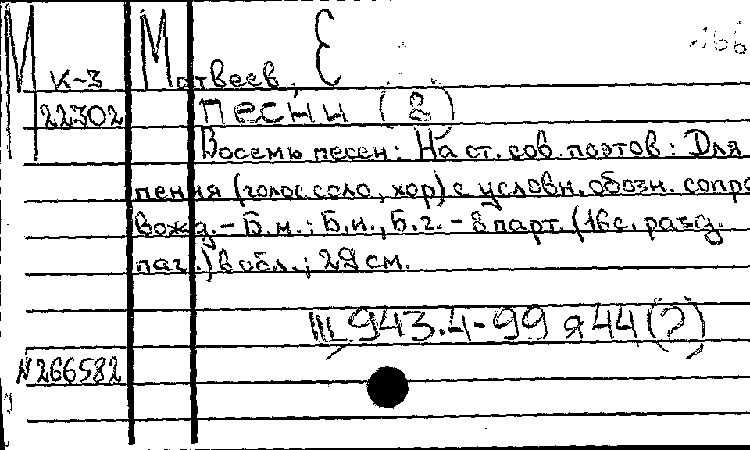 М К-3 Матвеев, Е
22302 Песни (8)
Восемь песен: На ст. сов. поэтов: Для
пения (голос соло, хор) с условн. обозн. сопро
вожд. - Б.м.: Б.и., Б.г. - 8 парт. (16с. разд.
паг.) в обл.; 29 см.
Ш 943.4-99 я 44 (2)
N 266582